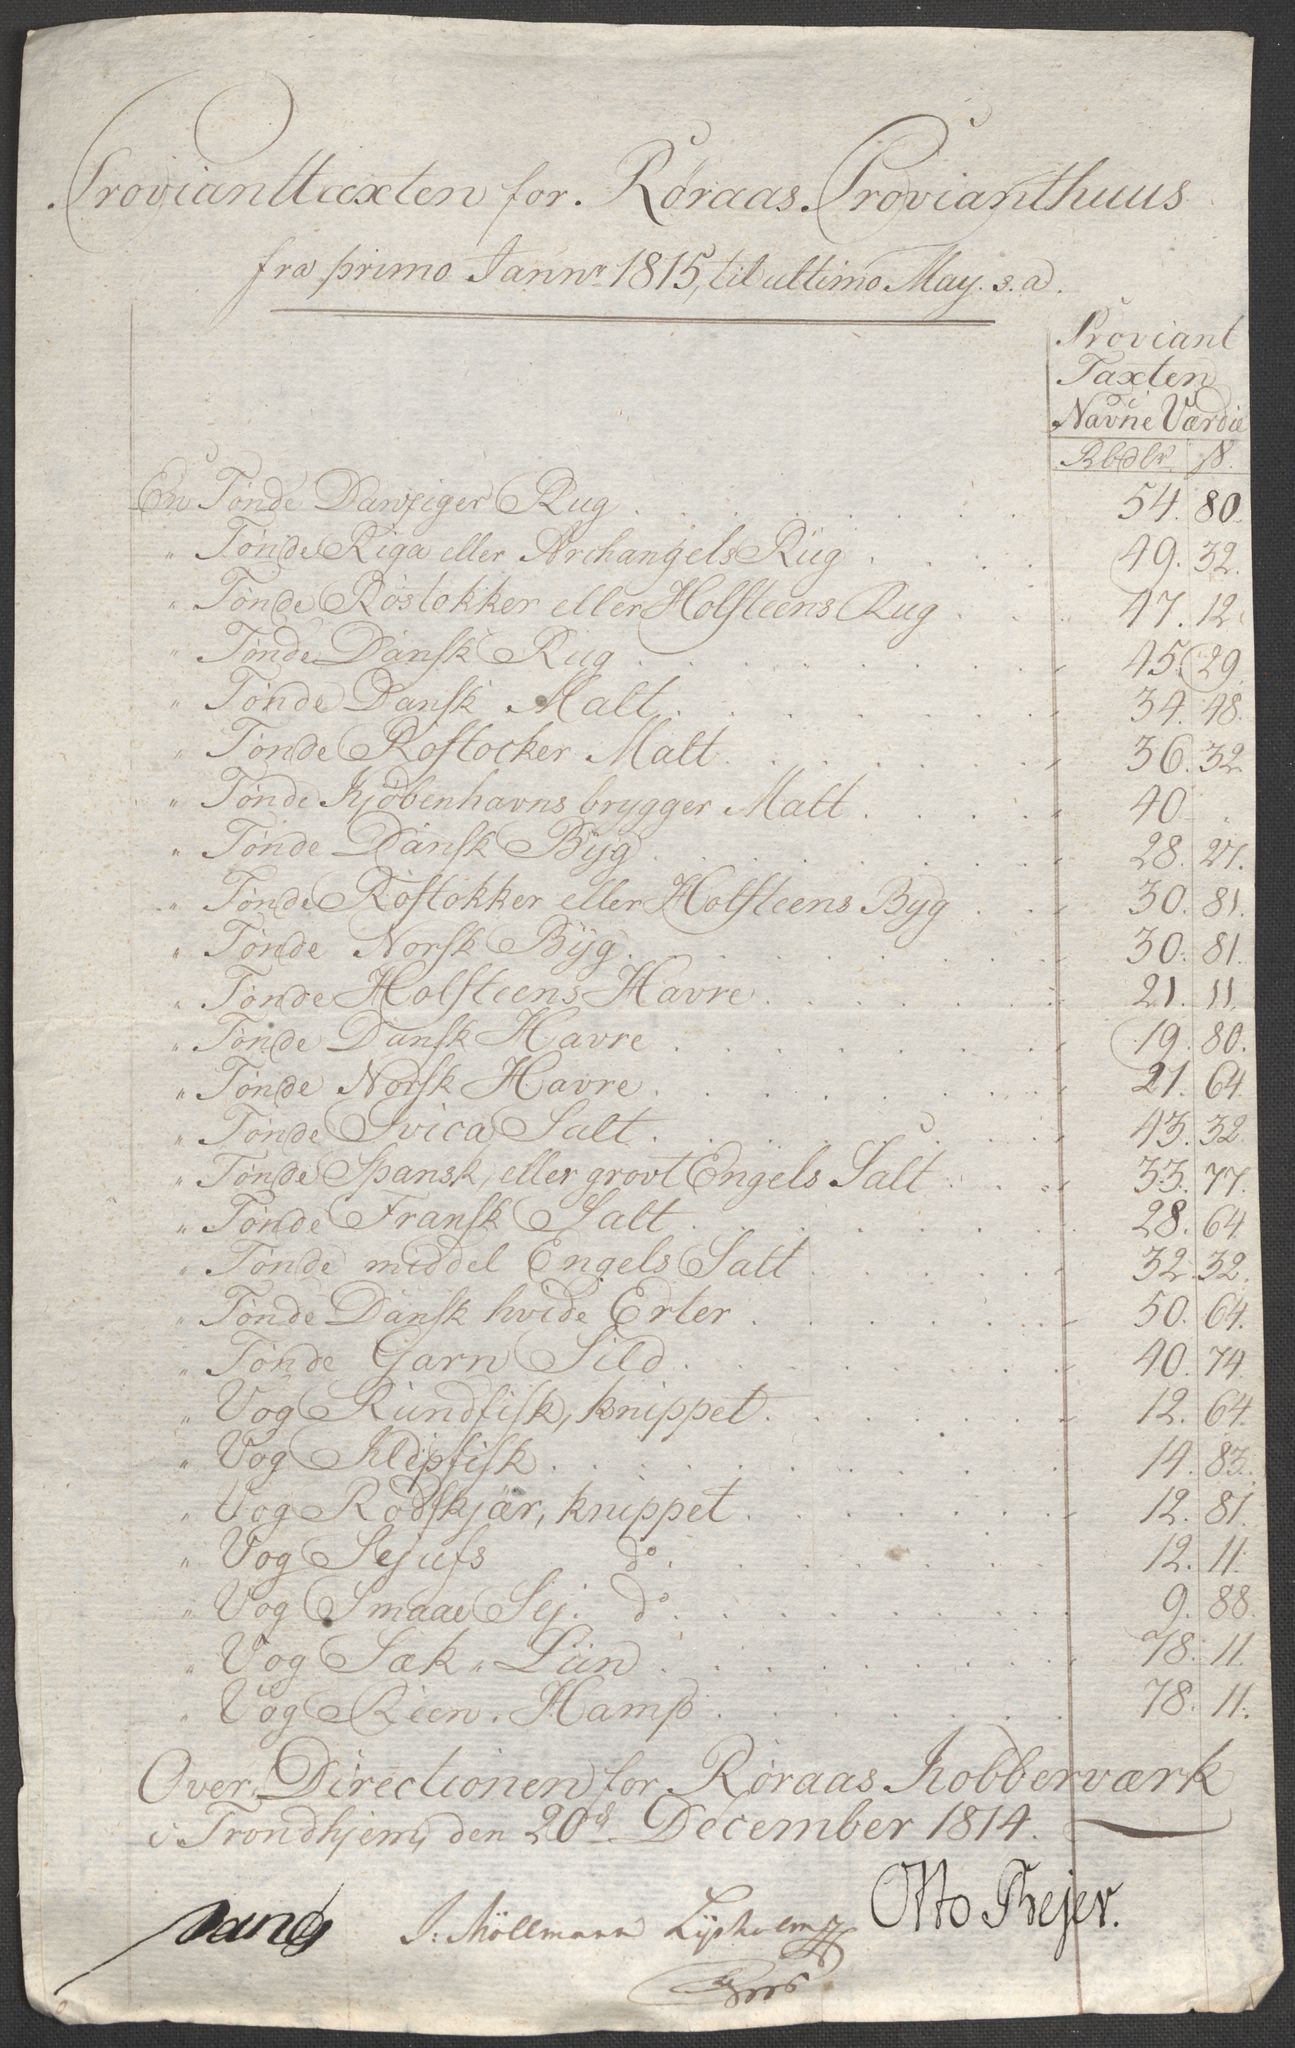 Provianttaxten for Røraas Provianthuus
fra primo Jannr 1815, til ultimo May. s. a.
Proviant
Taxten
i
Navne Værdie
Rbdlr. ß.
En Tønde Danziger Rug . . . 54. 80.
" Tønde Riga eller Archangels Rug . . . 49. 32.
" Tønde Rostokker eller Holsteens Rug . . . 47. 12.
" Tønde Dansk Rug . . . 45. 29.
" Tønde Dansk Malt . . . 34. 48.
" Tønde Rostocker Malt . . . 36. 32.
" Tønde Kjøbenhavns brygger Malt . . . 40. .
" Tønde Dansk Byg . . . 28. 27.
" Tønde Rostokker eller Holsteens Byg . . . 30. 81.
" Tønde Norsk Byg . . . 30. 81.
" Tønde Holsteens Havre . . . 21. 11.
" Tønde Dansk Havre . . . 19. 80.
" Tønde Norsk Havre . . . 21. 64.
" Tønde Ivica Salt . . . 43. 32.
" Tønde Spansk, eller grovt Engels Salt . . . 33. 77.
" Tønde Fransk Salt . . . 28. 64.
" Tønde middel Engels Salt . . . 32. 32.
" Tønde Dansk hvide Erter . . . 50. 64.
" Tønde Garn Sild . . . 40. 74.
" Vog Rundfisk, knippet . . . 12. 64.
" Vog Klipfisk . . . 14. 83.
" Vog Rødskjær, knippet . . . 12. 81.
" Vog Sejufs do . . . 12. 11.
" Vog Smaae Sej. do . . . 9. 88.
" Vog Sæk. Liin . . . 78. 11.
" Vog Reen. Hamp . . . 78. 11.
Over Directionen for Røraas Kobberværk
i Trondhjem, den 20d December 1814.
J. Möllmann Lysholm Otto Bejer.